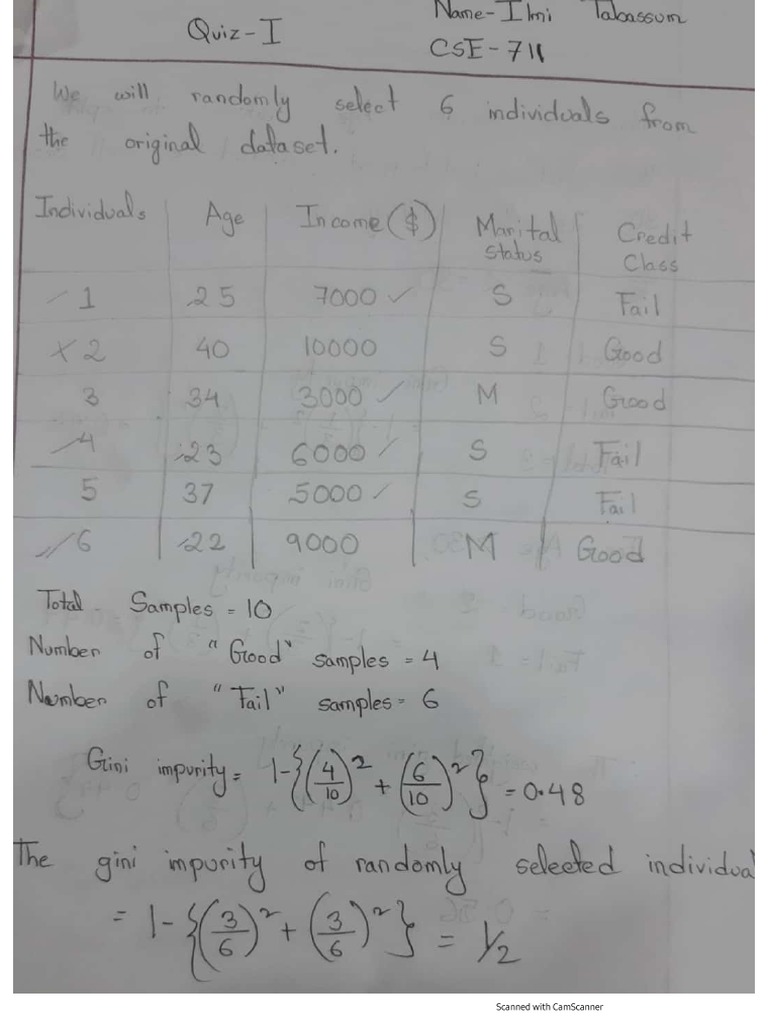 Quiz-I
Name-Ilmi Tabassum
CSE-711
We will randomly select 6 individuals from
the original dataset.
Individuals Age Income ($) Marital Status Credit Class
1 25 7000 ✓ S Fail
x 2 40 10000 S Good
3 34 3000 ✓ M Good
4 23 6000 ✓ S Fail
5 37 5000 ✓ S Fail
6 22 9000 M Good
Total Samples = 10
Number of "Good" samples = 4
Number of "Fail" samples = 6
Gini impurity = 1-{(4/10)² + (6/10)²} = 0.48
The gini impurity of randomly selected individual
= 1-{(3/6)² + (3/6)²} = 1/2
Scanned with CamScanner